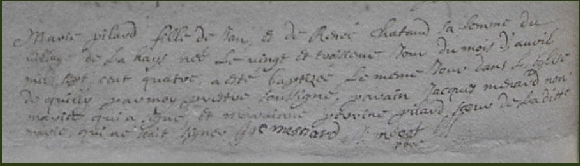 Marie pilard fille de Jan et de Renée Chataud sa femme du
village de La haye née Le vingt et troisieme Jour du mois d'avril
mil sept cent quatre, a été baptizée Le meme Jour dans L'Eglise
de quilly par moy prestre soussigné, parain Jacques mesnard non
marié qui a signé et maraine perrine pilard, sœur de Laditte
marie, qui ne sait signer J: mesnard
ptre